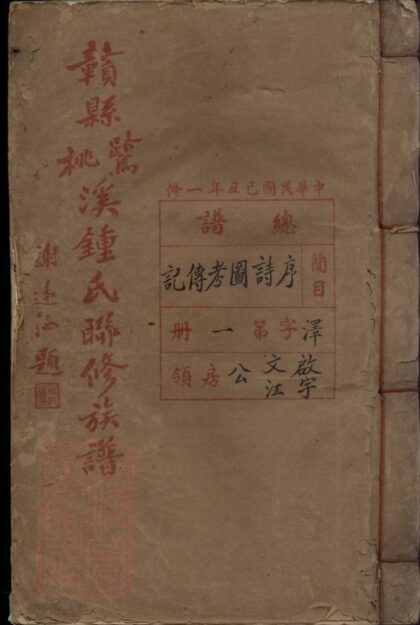 贛縣鷺桃溪鍾氏聯修族譜
謝遠涵題
中華民國己丑年一修
總譜
簡目
序詩圖考傳記
澤字第一册
啟宇文江公房領